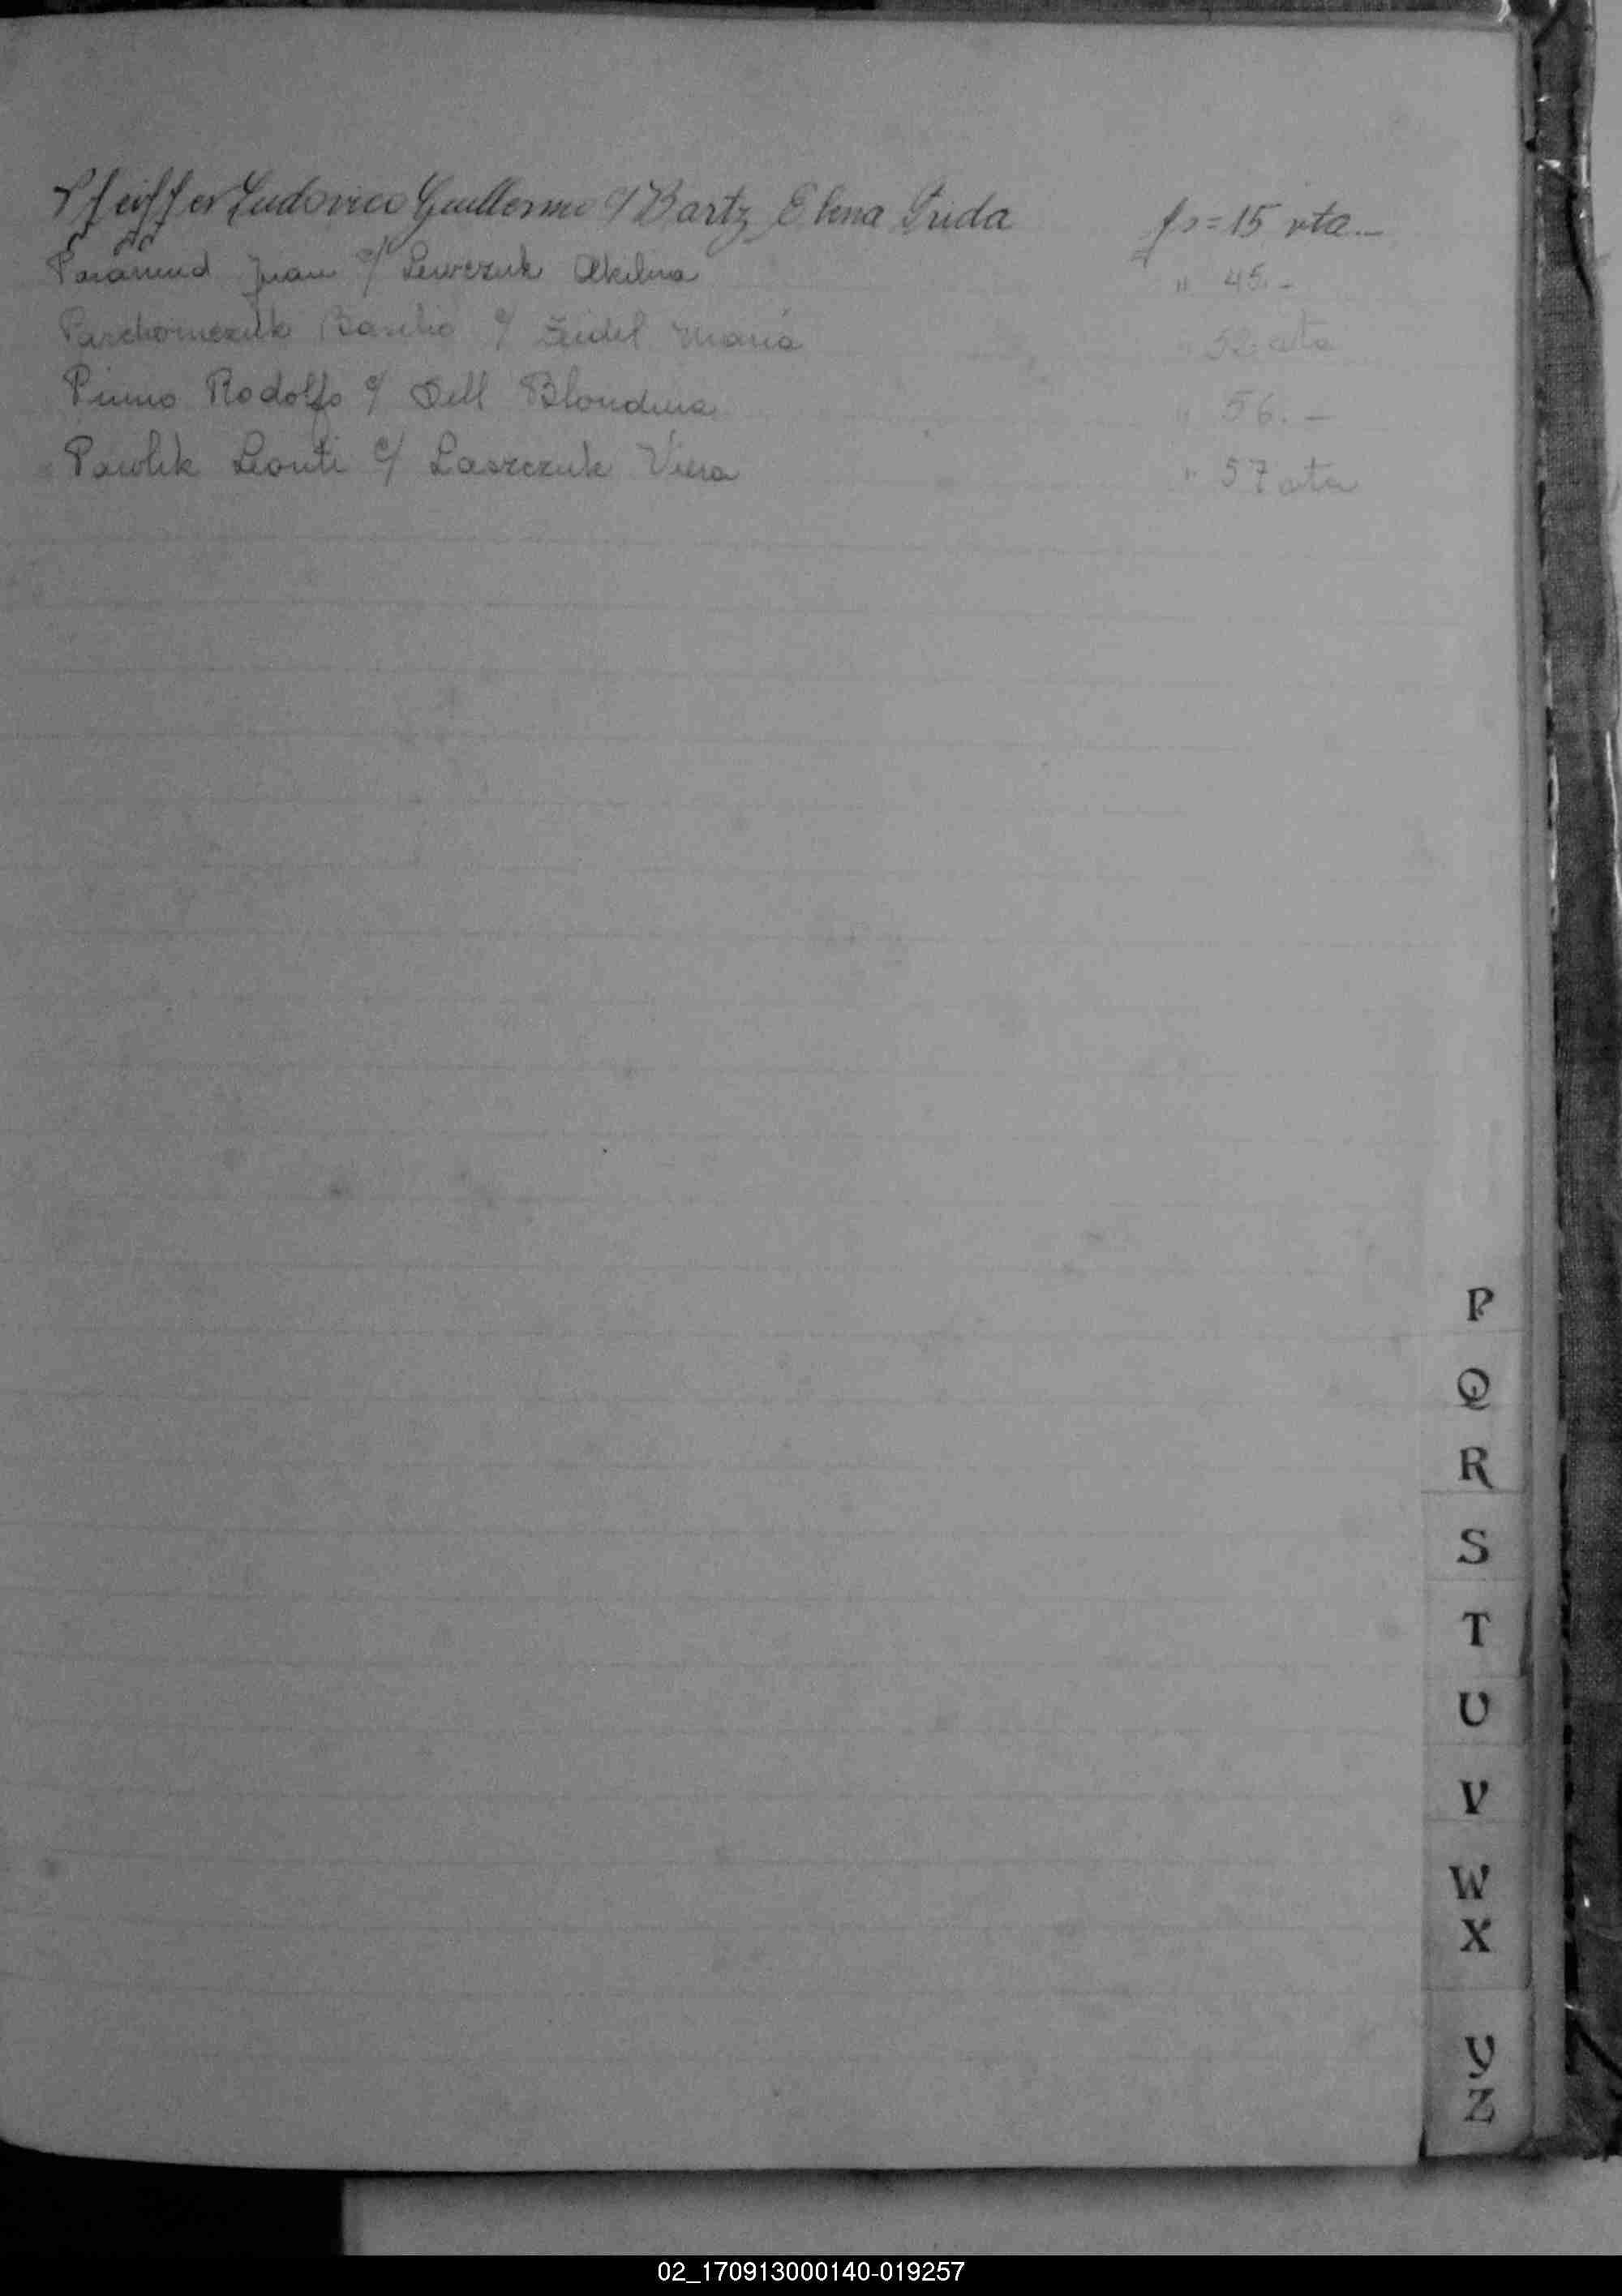 Pfeiffer Ludovico Guillermo c/ Bartz Elena Frida fs=15 vta.-
Juan c/ Lewczuk Akilina " 45.-
Parchomczuk Basilio c/ Zeidel Maria " 52 vta
Rodolfo c/ Dell Blondina " 56.-
Pawlik Leonti c/ Laszczuk Viera " 57 vta
P
Q
R
S
T
U
V
W
X
Y
Z
02_170913000140-019257